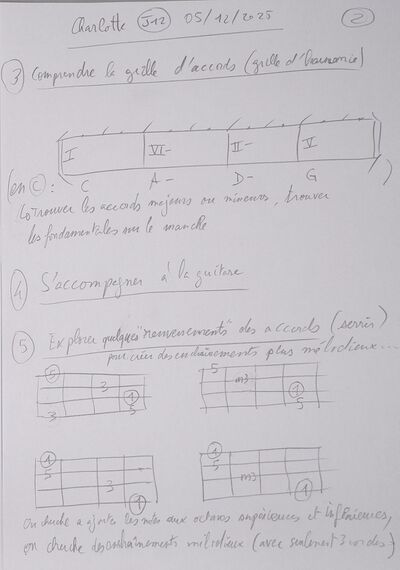 Charlotte J12 05/12/2025 2
3 Comprendre la grille d'accords (grille d'harmonie)
I VI- II- V
(en C : C A- D- G )
Trouver les accords majeurs ou mineurs, trouver
les fondamentales sur le manche
4 S'accompagner à la guitare
5 Explorer quelques "renversements" des accords (serrés)
pour créer des enchaînements plus mélodieux...
5 3 1 3 5
5 m3 1 5
1 5 3 1
1 5 m3 1
On cherche à ajouter les notes aux octaves supérieures et inférieures,
on cherche des enchaînements mélodieux (avec seulement 3 cordes)